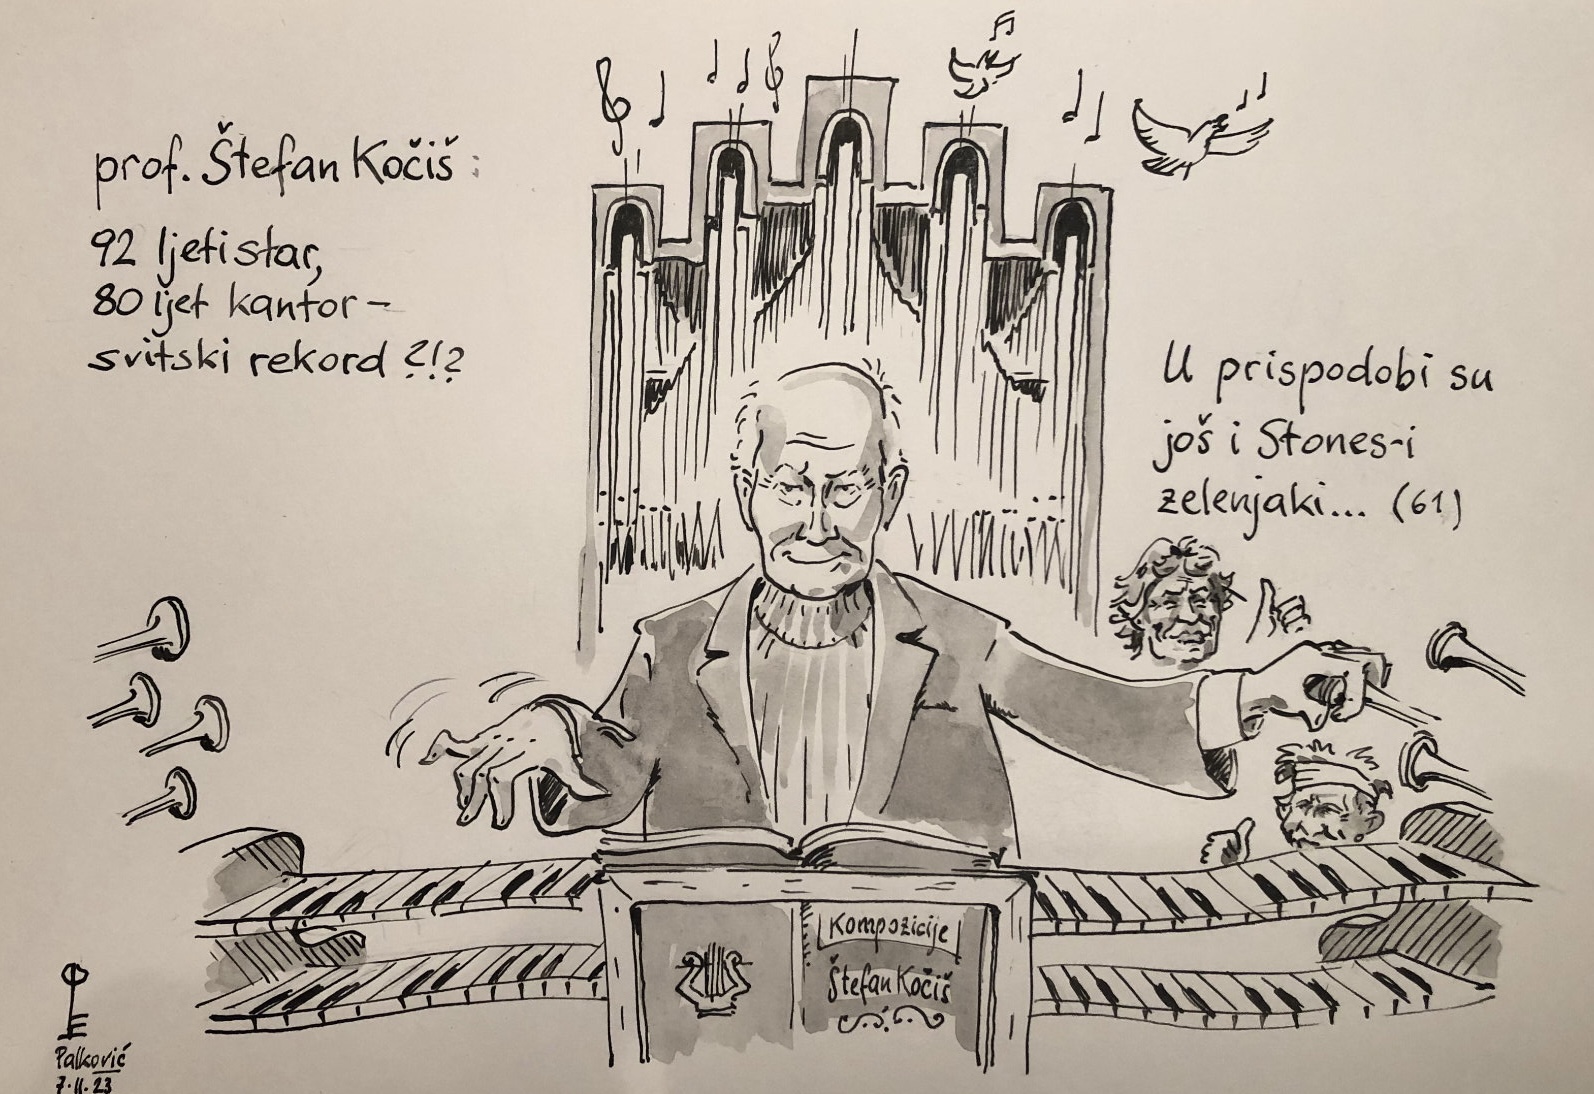 prof. Štefan Kočiš:
92 ljeti star,
80 ljet kantor –
svitski rekord ?!?
U prispodobi su
još i Stones-i
zelenjaki... (61)
Kompozicije
Štefan Kočiš
Palković
7.11.23